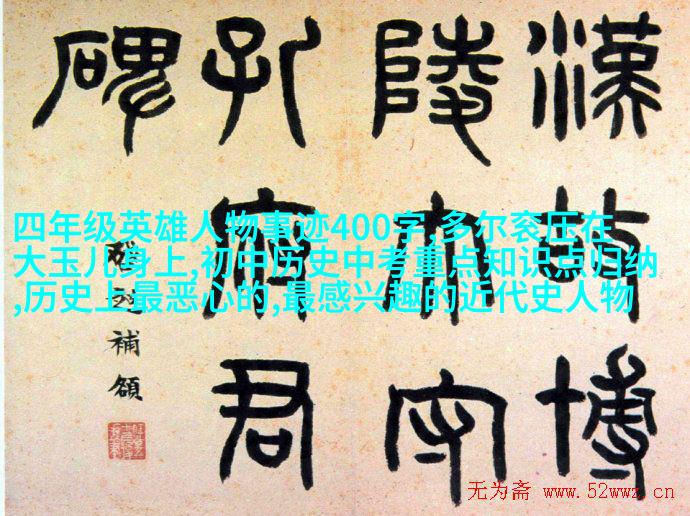 漢故博
陵太守
孔府君
碑
補
四年级英雄人物事迹400字,多尔衮压在
大玉儿身上,初中历史中考重点知识点归纳
,历史上最恶心的,最感兴趣的近代史人物
无为斋 www.52wwz.cn